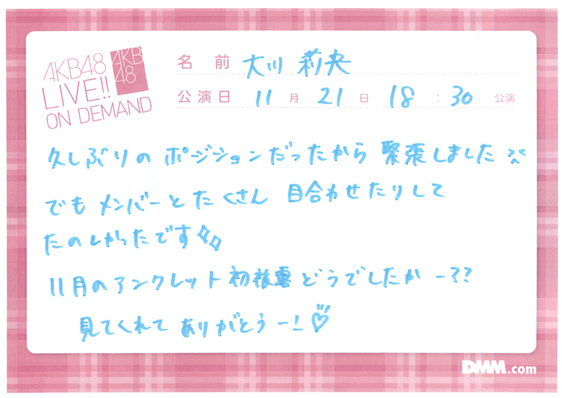 AKB48
LIVE!!
ON DEMAND
AKB
48
名前 大川 莉央
公演日 11月21日 18:30 公演
久しぶりの ポジションだったから 緊張しました
でも メンバーと たくさん 目合わせたりして
たのしかったです
11月のアンクレット 初披露 どうでしたかー??
見てくれて ありがとうー!♡
DMM.com